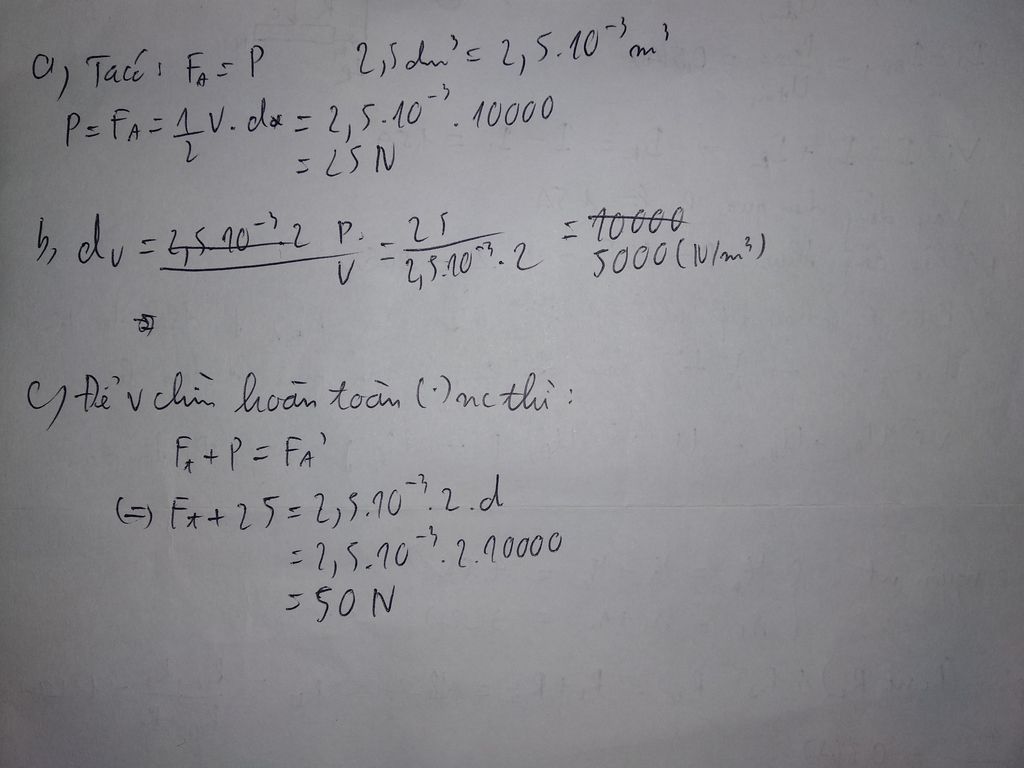 a, Ta có: F_A = P    2,5dm³ = 2,5.10⁻³m³
P = F_A = 1/2 V. d = 2,5.10⁻³. 10000
= 25 N
b, d_v = P/V = 25/(2,5.10⁻³. 2) = 5000 (N/m³)
c, Để v chìm hoàn toàn (.) nc thì:
F_* + P = F_A'
(=) F_* + 25 = 2,5.10⁻³. 2. d
= 2,5.10⁻³. 2.10000
= 50 N